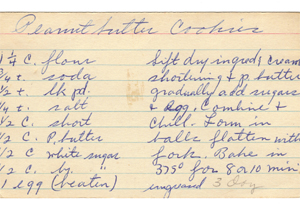 Peanutbutter Cookies
1¼ C. flour
¾ t. soda
½ t. bk pd.
¼ t. salt
½ C. short
½ C. P. butter
½ C white sugar
½ C. br. "
1 egg (beaten)
Sift dry ingreds, cream
shortening & p. butter
gradually add sugars
& egg. Combine &
Chill. Form in
balls flatten with
fork. Bake in
375° for 8 or 10 min
ungreased 3 Doz